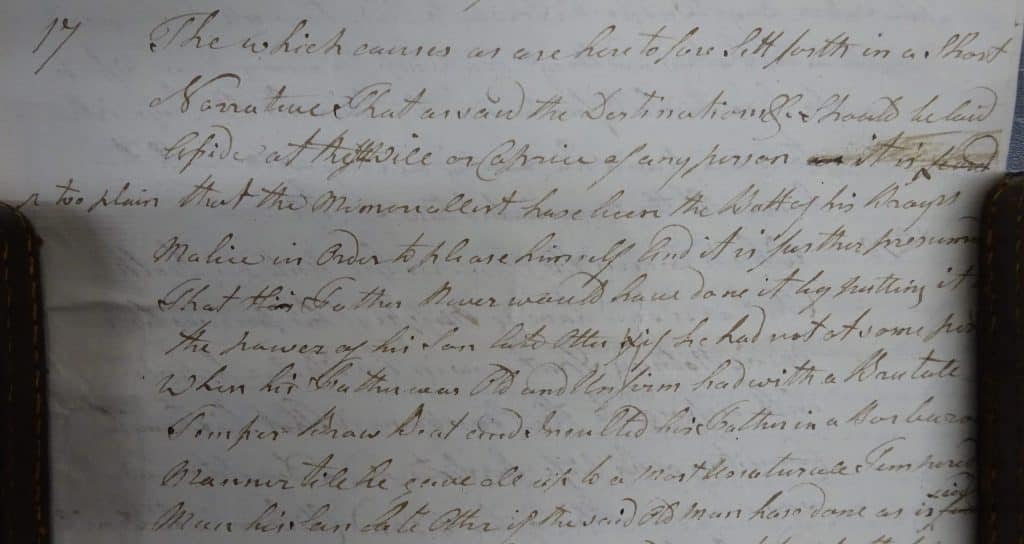 17 The which causes as are heretofore Sett forth in a Short
Narrative That as said the Destination &c Should be laid
Aside at the Will or Caprice of any person it is
too plain that the Memoriallist have been the Butt of his
Malice in Order to please himself And it is further
That his Father Never would have done it by putting it
the power of his Son late Otho if he had not at some
When his Father was Old and Unfirm had with a Brutale
Temper Brow Beat and Insulted his Father in a
Manner tile he gave all up to a most Unaturale
Man his Son late Otho if the said Old man have done as is